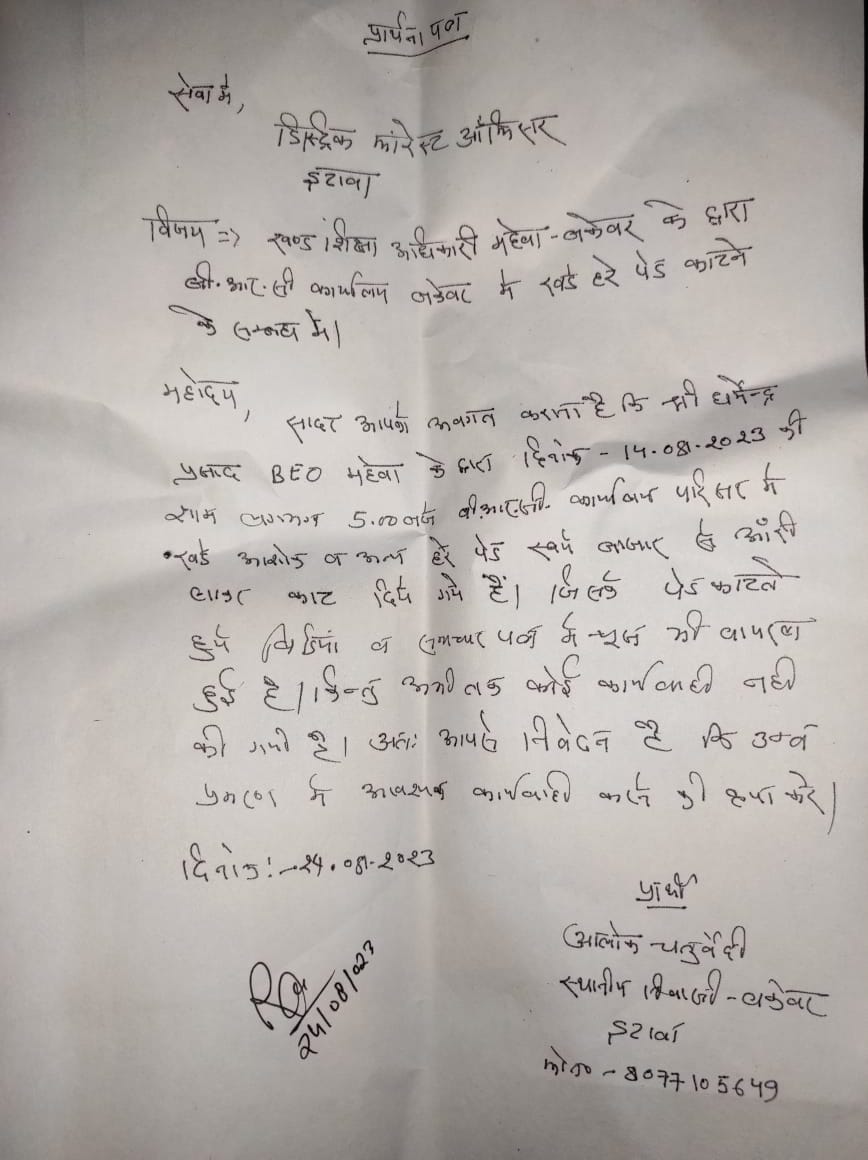 प्रार्थना पत्र
सेवा में,
डिस्ट्रिक फारेस्ट ऑफिसर
इटावा
विषय => खण्ड शिक्षा अधिकारी महेवा-बकेवर के द्वारा
बी.आर.सी कार्यालय बकेवर में खडे हरे पेड काटने
के सम्बन्ध में।
महोदय,
सादर आपको अवगत कराना है कि श्री धर्मेन्द्र
प्रसाद BEO महेवा के द्वारा दिनांक - 14.08.2023 की
शाम लगभग 5.00 बजे बी.आर.सी. कार्यालय परिसर में
खडे अशोक व अन्य हरे पेड स्वयं बाजार से आरी
लाकर काट दिये गये हैं। जिसके पेड काटते
हुये विडियो व समाचार पत्र में न्यूज भी वायरल
हुई है। किन्तु अभी तक कोई कार्यवाही नही
की गयी है। अतः आपसे निवेदन है कि उक्त
प्रकरण में आवश्यक कार्यवाही करने की कृपा करे।
दिनांक:-24.08.2023
प्रार्थी
आलोक चतुर्वेदी
स्थानीय निवासी - बकेवर
24/08/023
इटावा
मो०न० - 8077105649